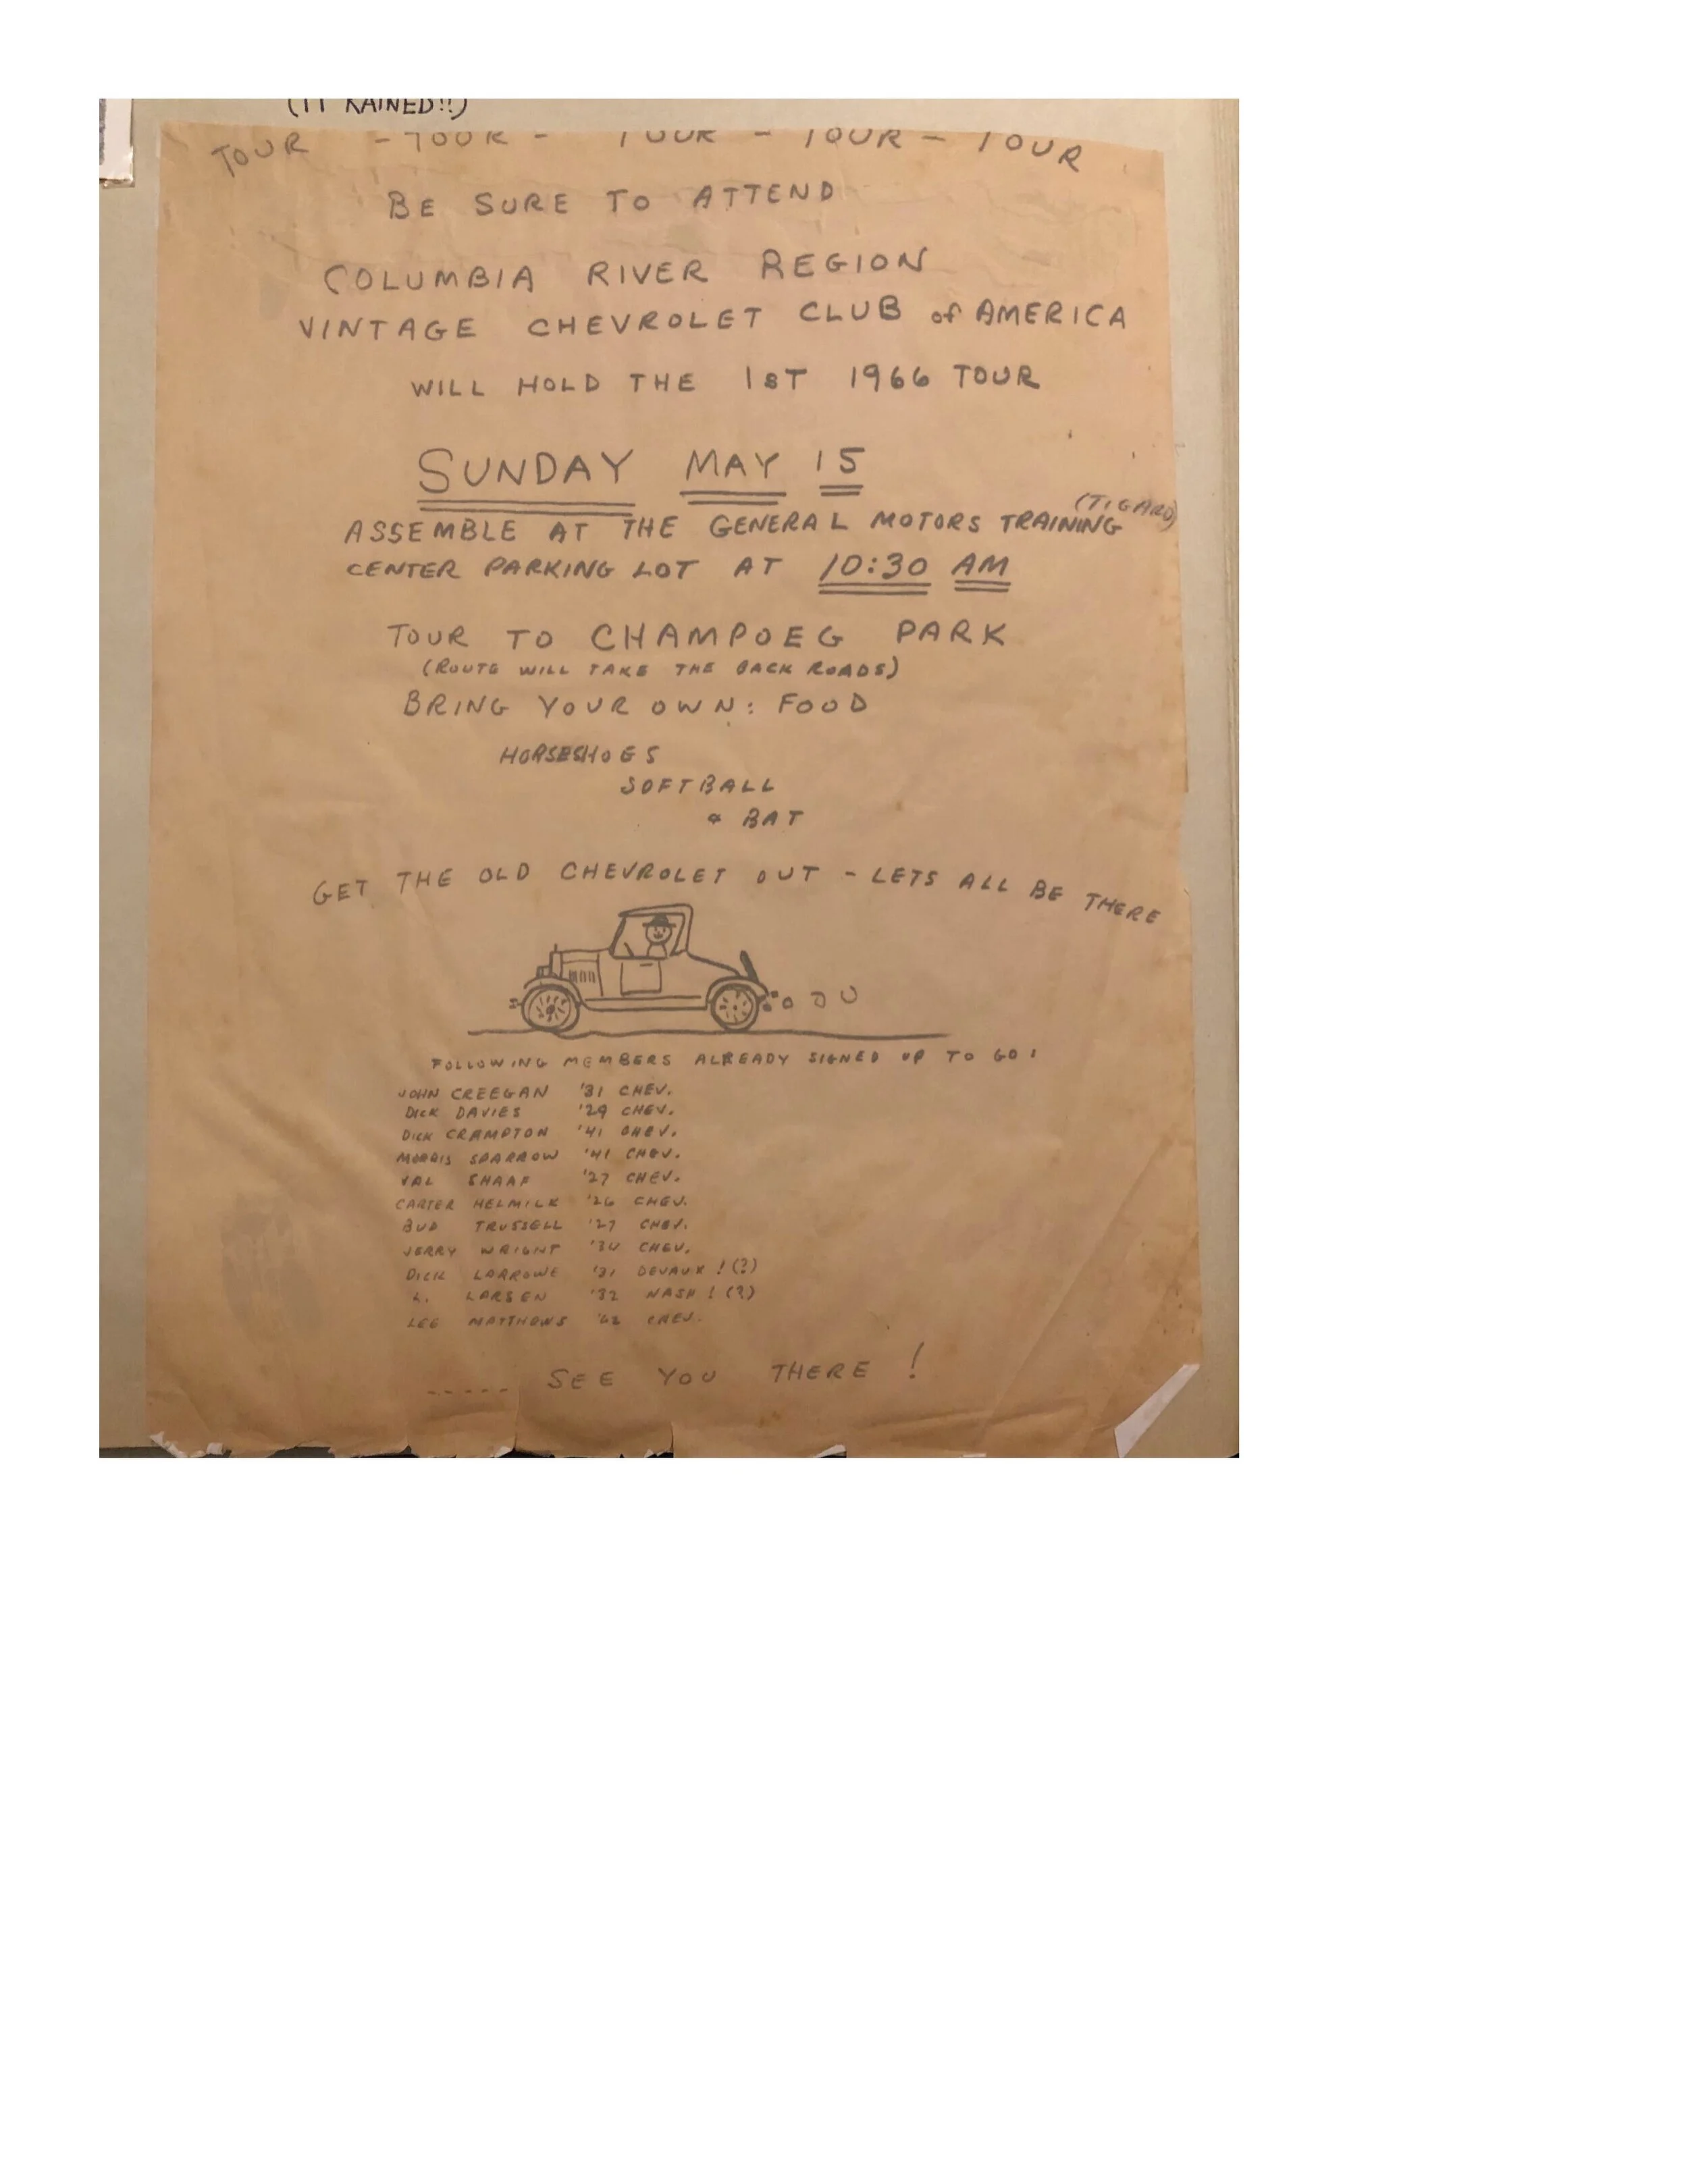 (IT RAINED!!)
TOUR - TOUR - TOUR - TOUR - TOUR
BE SURE TO ATTEND
COLUMBIA RIVER REGION
VINTAGE CHEVROLET CLUB of AMERICA
WILL HOLD THE 1ST 1966 TOUR
SUNDAY MAY 15
(TIGARD)
ASSEMBLE AT THE GENERAL MOTORS TRAINING
CENTER PARKING LOT AT 10:30 AM
TOUR TO CHAMPOEG PARK
(ROUTE WILL TAKE THE BACK ROADS)
BRING YOUR OWN: FOOD
HORSESHOES
SOFTBALL
& BAT
GET THE OLD CHEVROLET OUT - LETS ALL BE THERE
FOLLOWING MEMBERS ALREADY SIGNED UP TO GO:
JOHN CREEGAN '31 CHEV.
DICK DAVIES '29 CHEV.
DICK CRAMPTON '41 CHEV.
MORRIS SPARROW '41 CHEV.
VAL SHAAF '27 CHEV.
CARTER HELMILK '26 CHEV.
BUD TRUSSELL '27 CHEV.
JERRY WRIGHT CHEV.
DICK LARROWE '31 DEVAUX ! (?)
L. LARSEN '32 NASH ! (?)
LEE MATTHEWS '62 CHEV.
----- SEE YOU THERE !